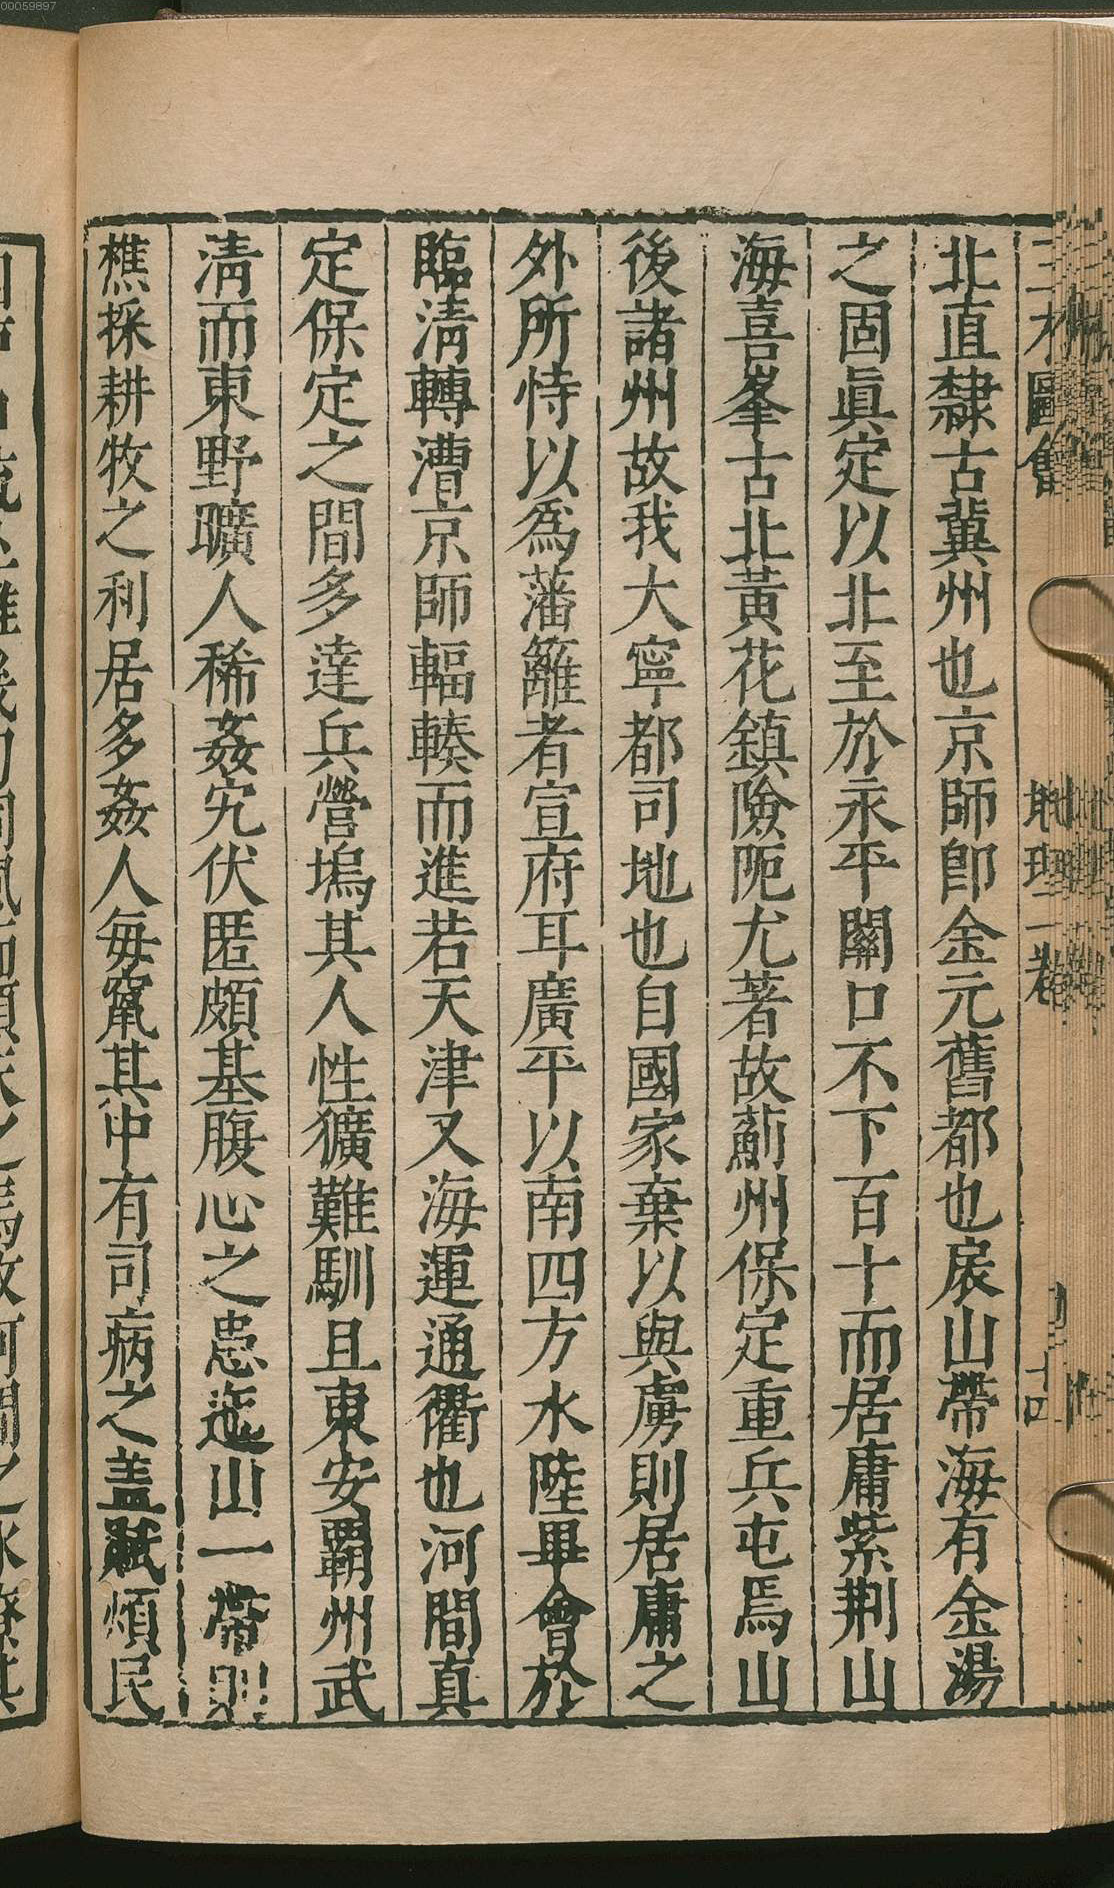 00059897
三才圖會 地理一卷 十四
北直隸古冀州也京師卽金元舊都也扆山帶海有金湯
之固眞定以北至於永平關口不下百十而居庸紫荆山
海喜峯古北黃花鎮險阨尤著故薊州保定重兵屯焉山
後諸州故我大寧都司地也自國家棄以與虜則居庸之
外所恃以爲藩籬者宣府耳廣平以南四方水陸畢會於
臨淸轉漕京師輻輳而進若天津又海運通衢也河間真
定保定之間多達兵營塢其人性獷難馴且東安霸州武
淸而東野曠人稀姦宄伏匿頗基腹心之患迤山一帶則
樵採耕牧之利居多姦人每竄其中有司病之盖賦煩民